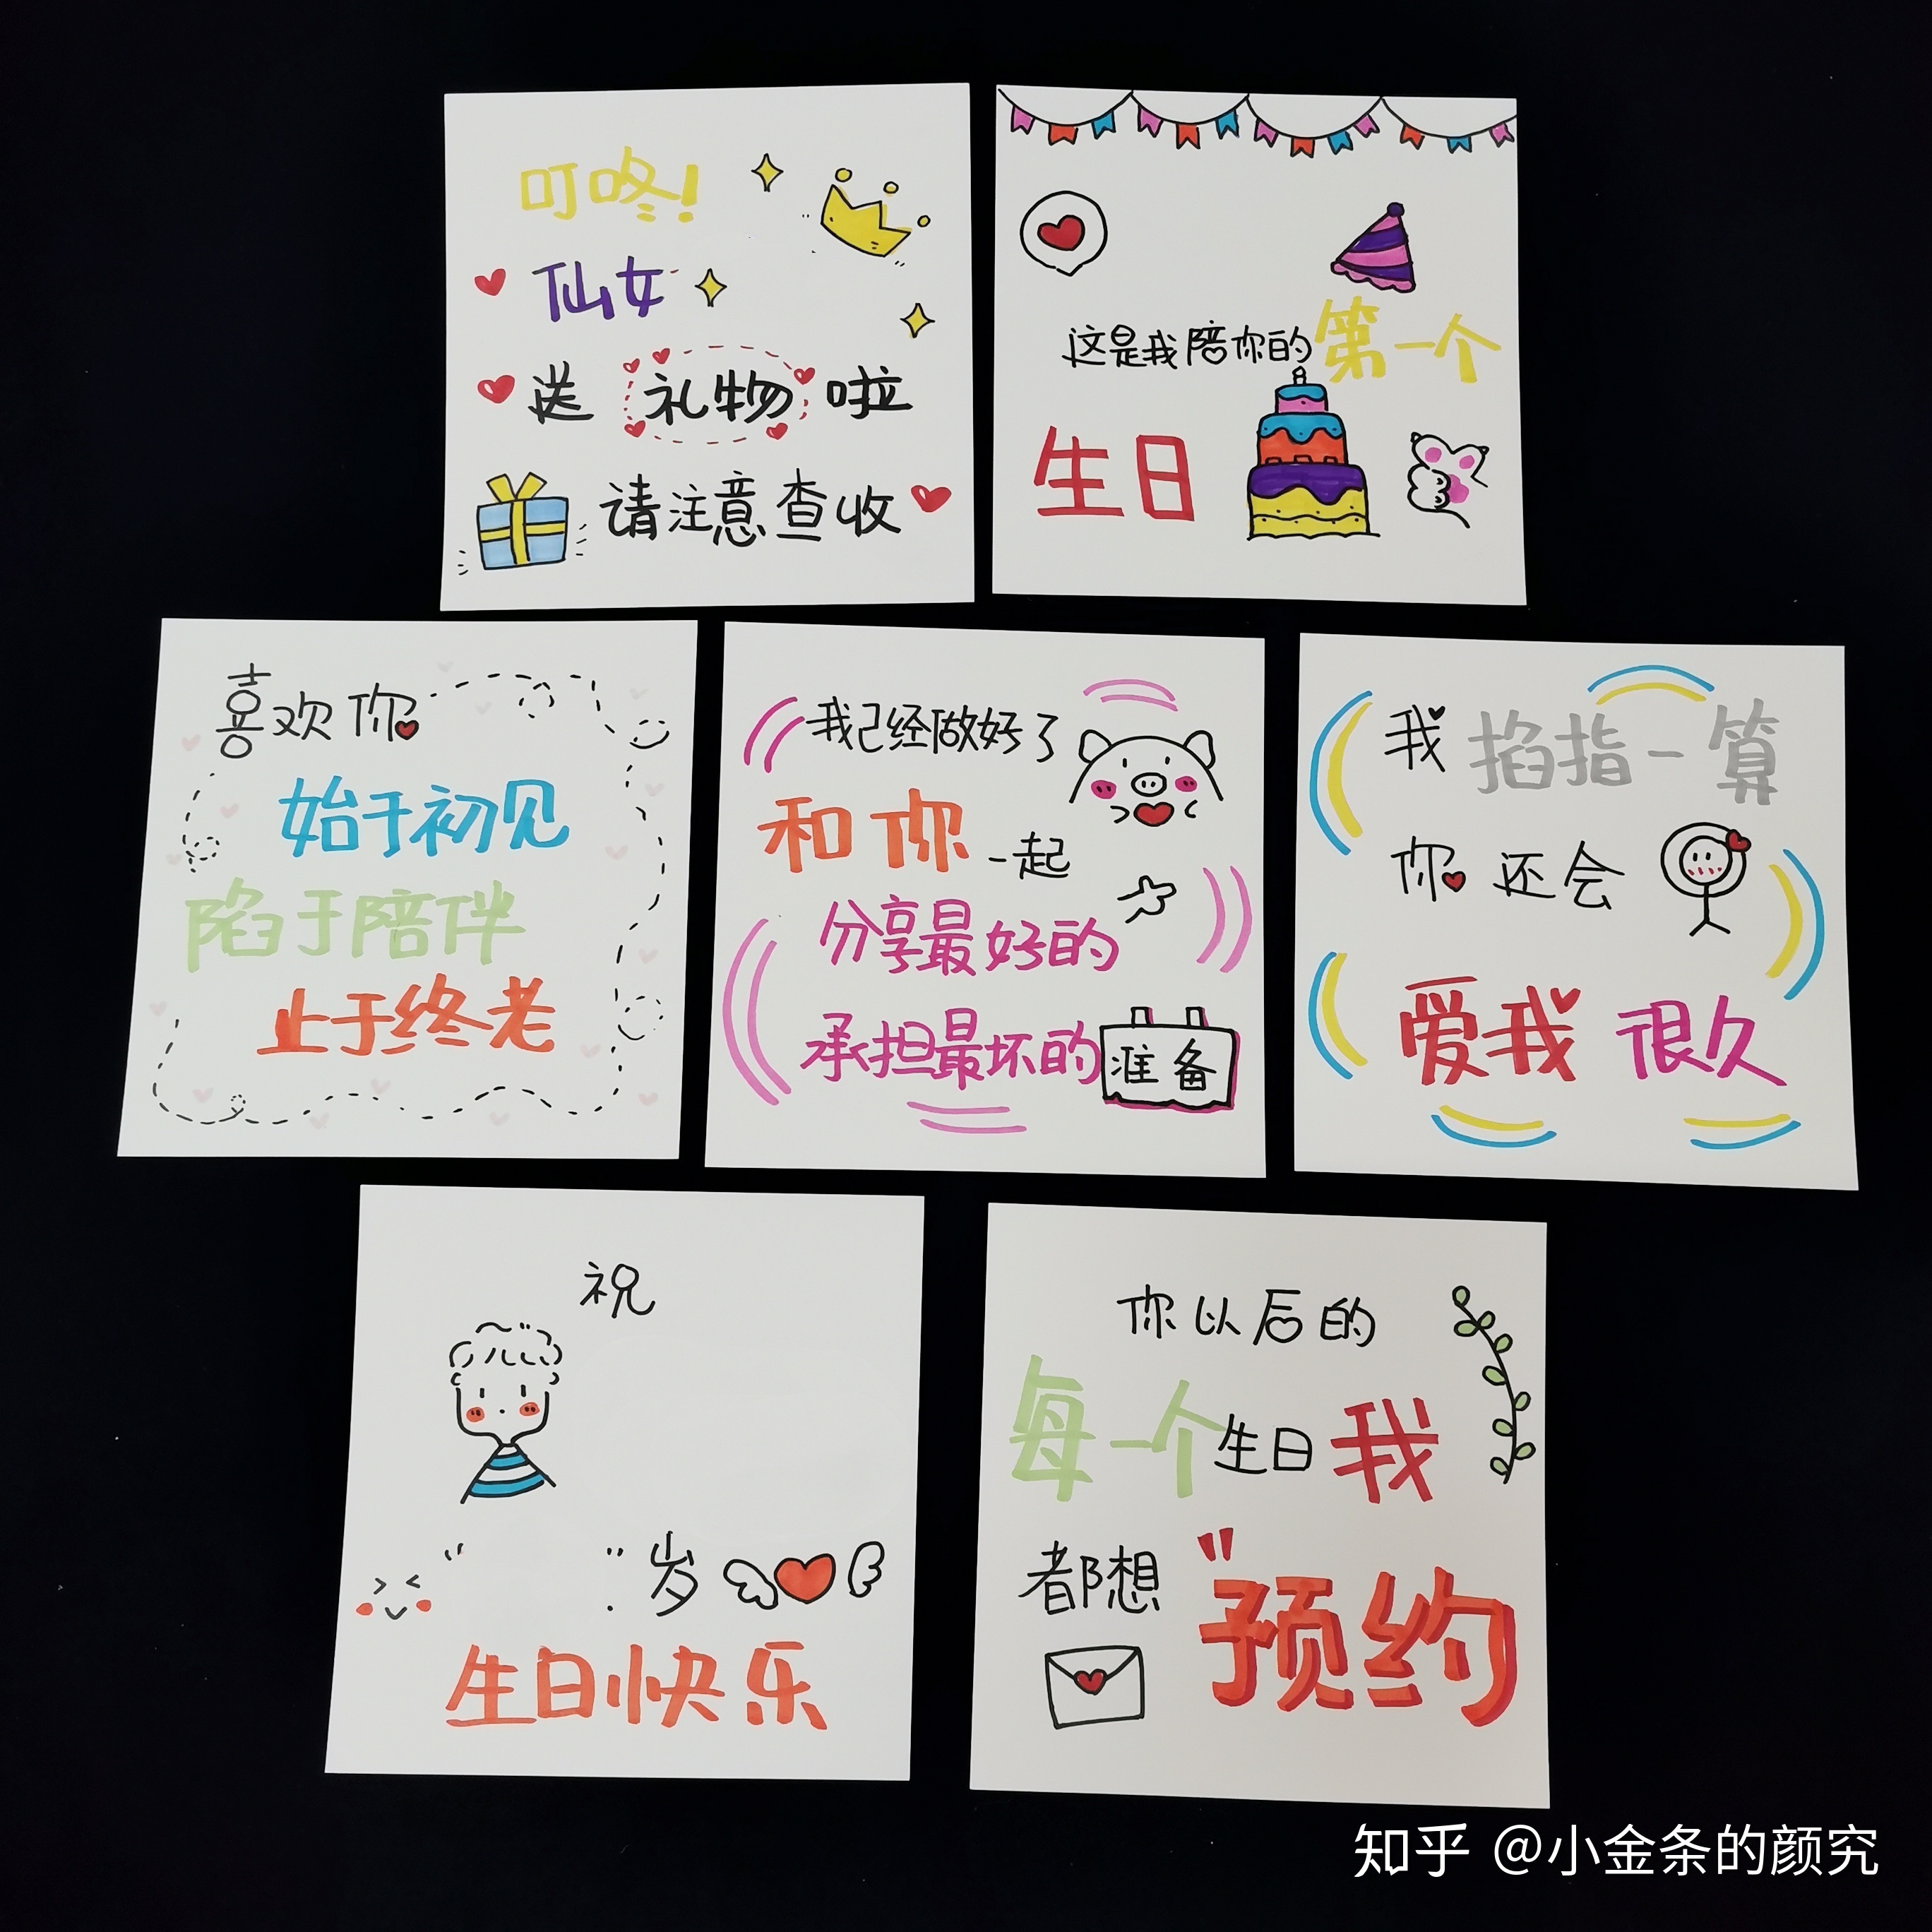 叮咚!
仙女
送 礼物 啦
请注意查收
这是我陪你的第一个
生日
喜欢你
始于初见
陷于陪伴
止于终老
我己经做好了
和你一起
分享最好的
承担最坏的准备
我掐指一算
你还会
爱我很久
祝
岁
生日快乐
你以后的
每一个生日我
都想"预约
知乎 @小金条的颜究